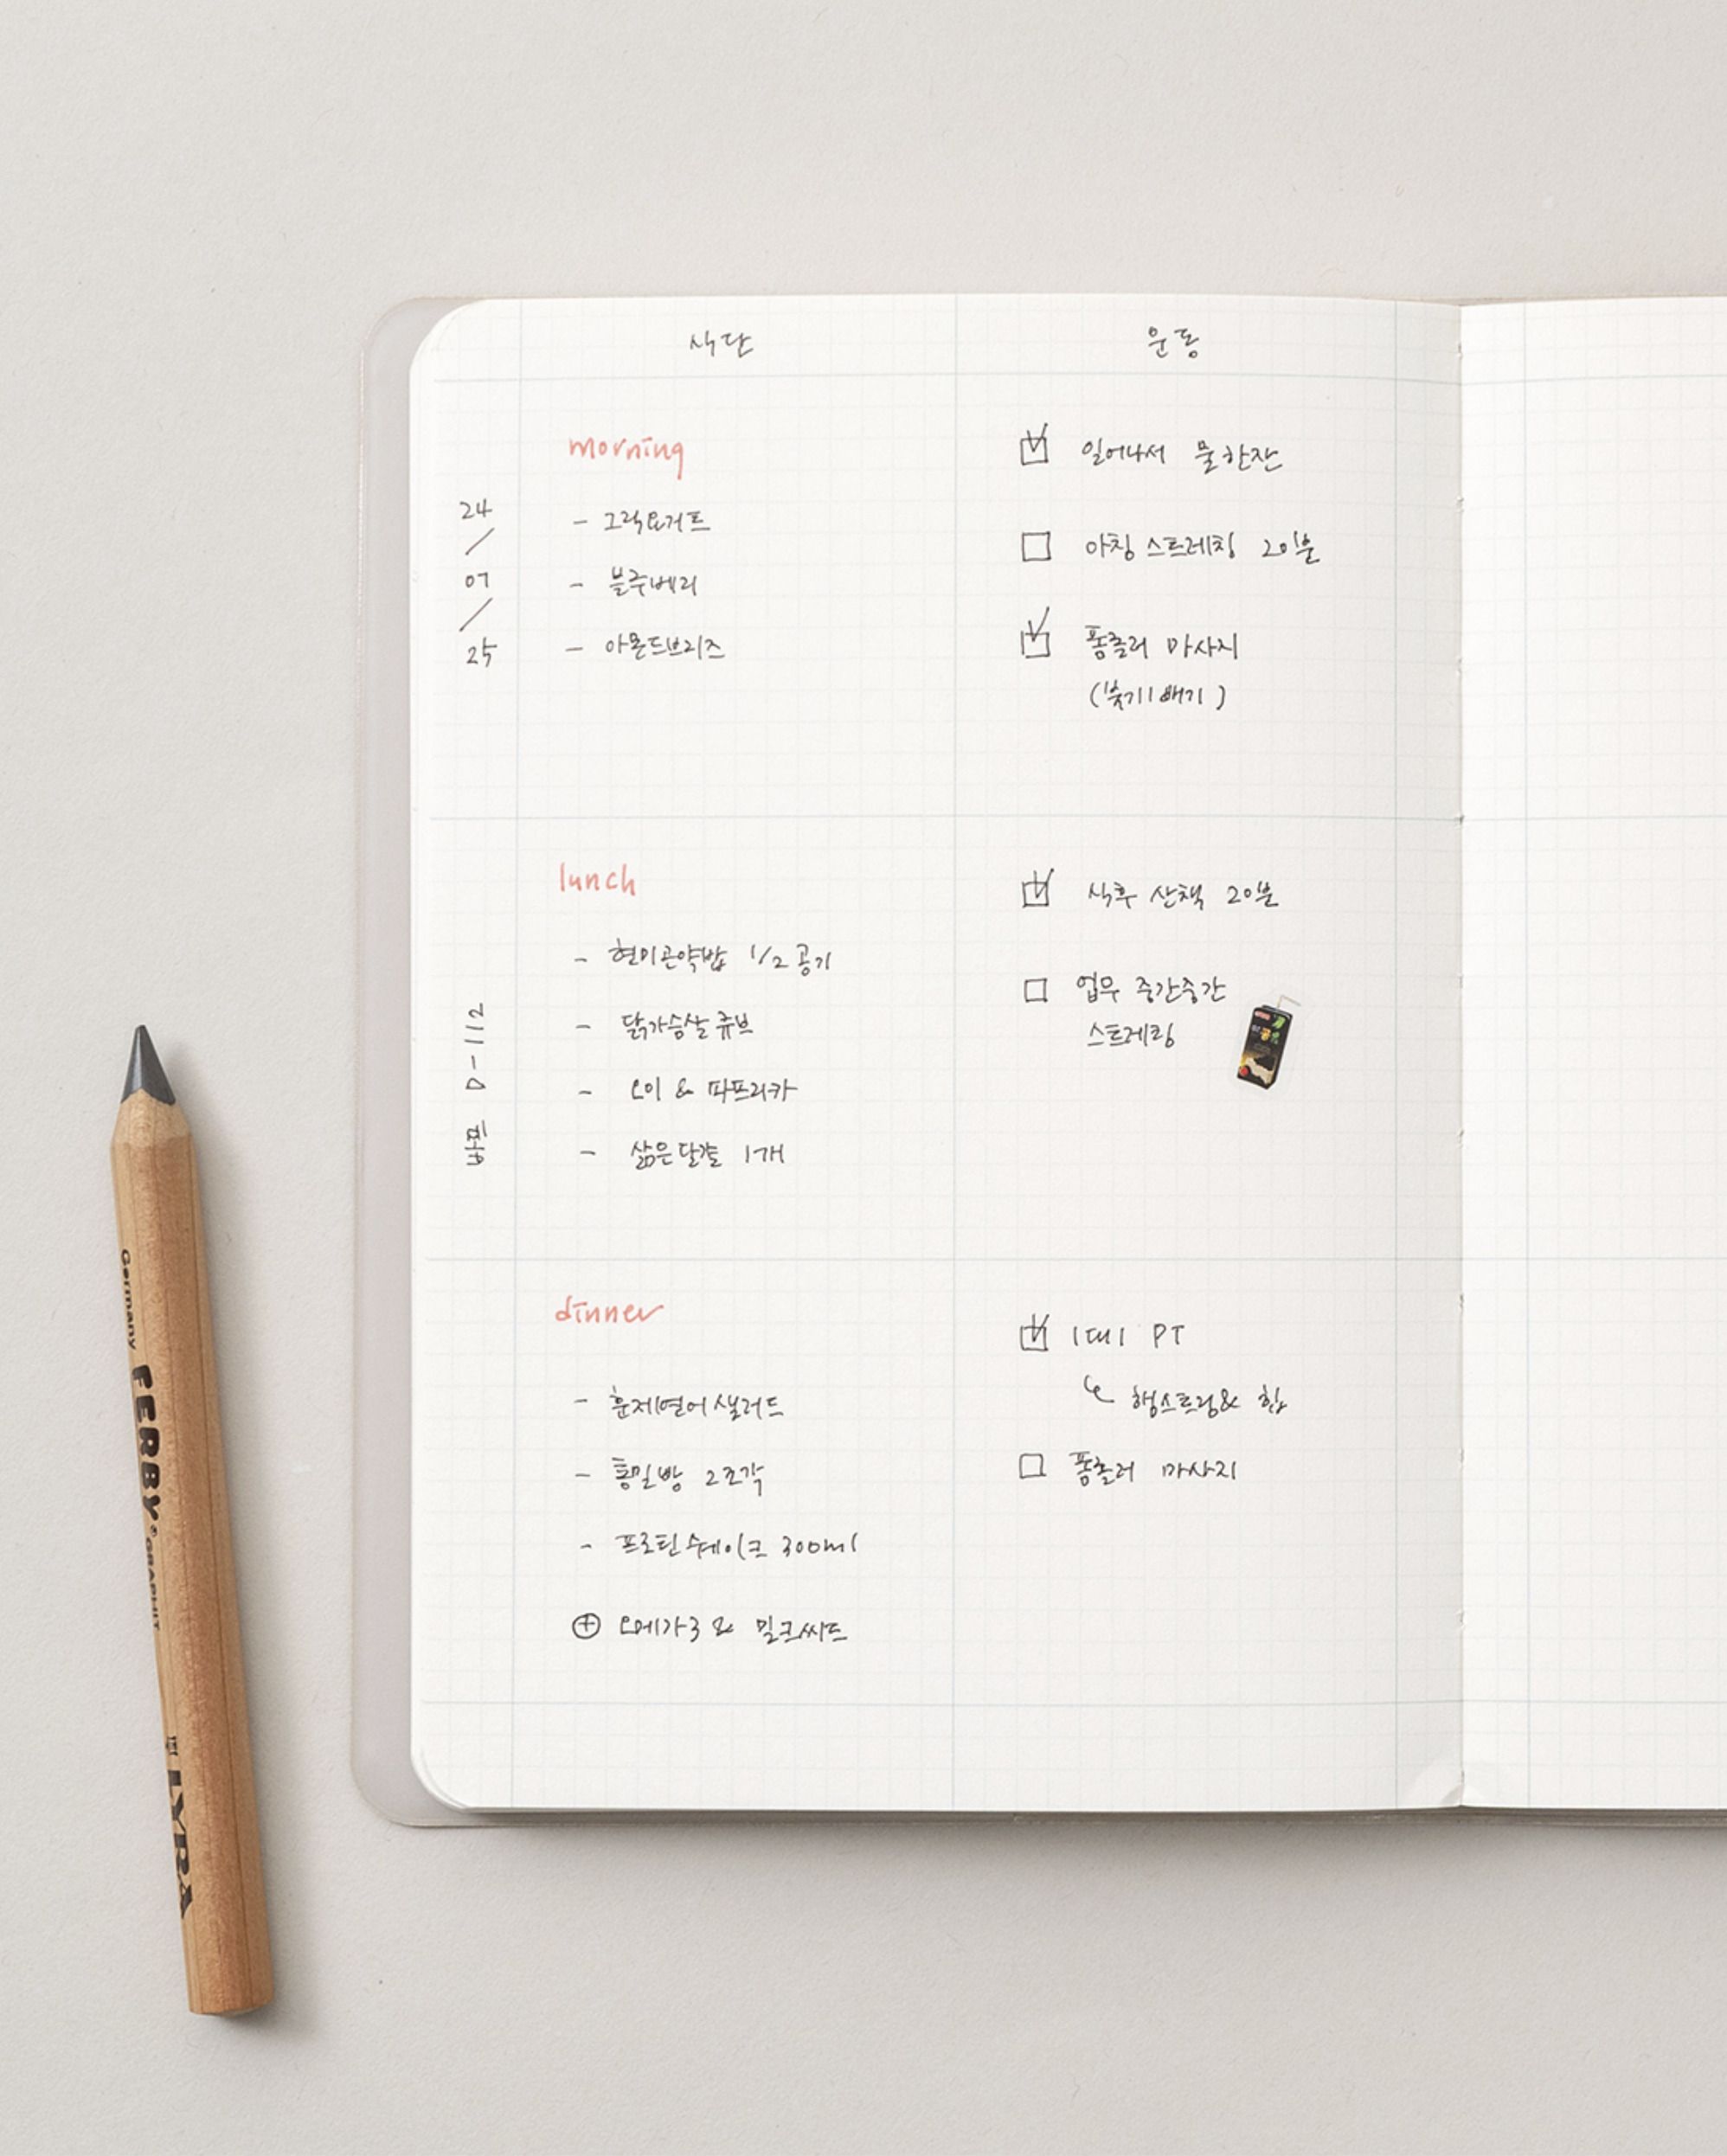 식단
운동
24
/
07
/
25
morning
- 그릭요거트
- 블루베리
- 아몬드브리즈
일어나서 물한잔
아침 스트레칭 20분
폼롤러 마사지
(붓기빼기)
바프 D-112
lunch
- 현미곤약밥 1/2공기
- 닭가슴살 큐브
- 오이 & 파프리카
- 삶은달걀 1개
식후 산책 20분
업무 중간중간
스트레칭
dinner
- 훈제연어샐러드
- 통밀빵 2조각
- 프로틴쉐이크 300ml
⊕ 오메가3 & 밀크씨슬
1대1 PT
햄스트링& 힙
폼롤러 마사지
Germany FERBY GRAPHIT LYRA